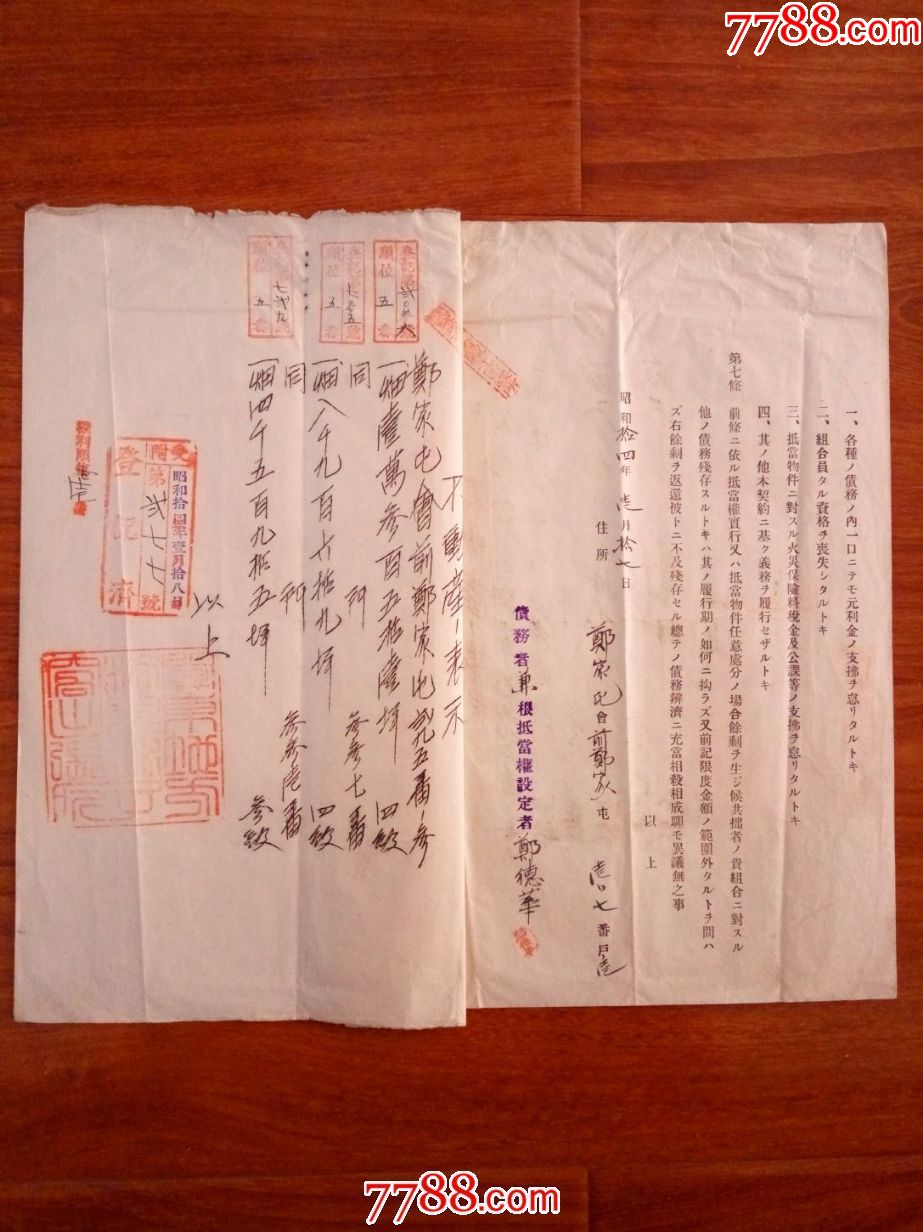 7788.com
一、各種ノ債務ノ內一口ニテモ元利金ノ支拂ヲ怠リタルトキ
二、組合員タル資格ヲ喪失シタルトキ
三、抵當物件ニ對スル火災保險料稅金及公課等ノ支拂ヲ怠リタルトキ
四、其ノ他本契約ニ基ク義務ヲ履行セザルトキ
第七條 前條ニ依ル抵當權實行又ハ抵當物件任意處分ノ場合餘剩ヲ生ジ候共拙者ノ貴組合ニ對スル
他ノ債務殘存スルトキハ其ノ履行期ノ如何ニ拘ラズ又前記限度金額ノ範圍外タルトヲ問ハ
ズ右餘剩ヲ返還被下ニ不及殘存セル總テノ債務辨濟ニ充當相殺相成聊モ異議無之事
以上
昭和拾四年壱月拾七日
住所 鄭家屯會前鄭家屯 壱〇七番戶
債務者兼根抵當權設定者 鄭德華
不動產ノ表示
鄭家屯會前鄭家屯弐五番ノ參
一畑壹萬參百五拾陸坪 四級
同 所 參參七番
一畑八千九百六拾九坪 四級
同 所 參參壱番
一畑四千五百九拾五坪 參級
以上
順位五番
順位五番
順位五番
受附
昭和拾四年壹月拾八日
第弐七七號
登記濟
7788.com